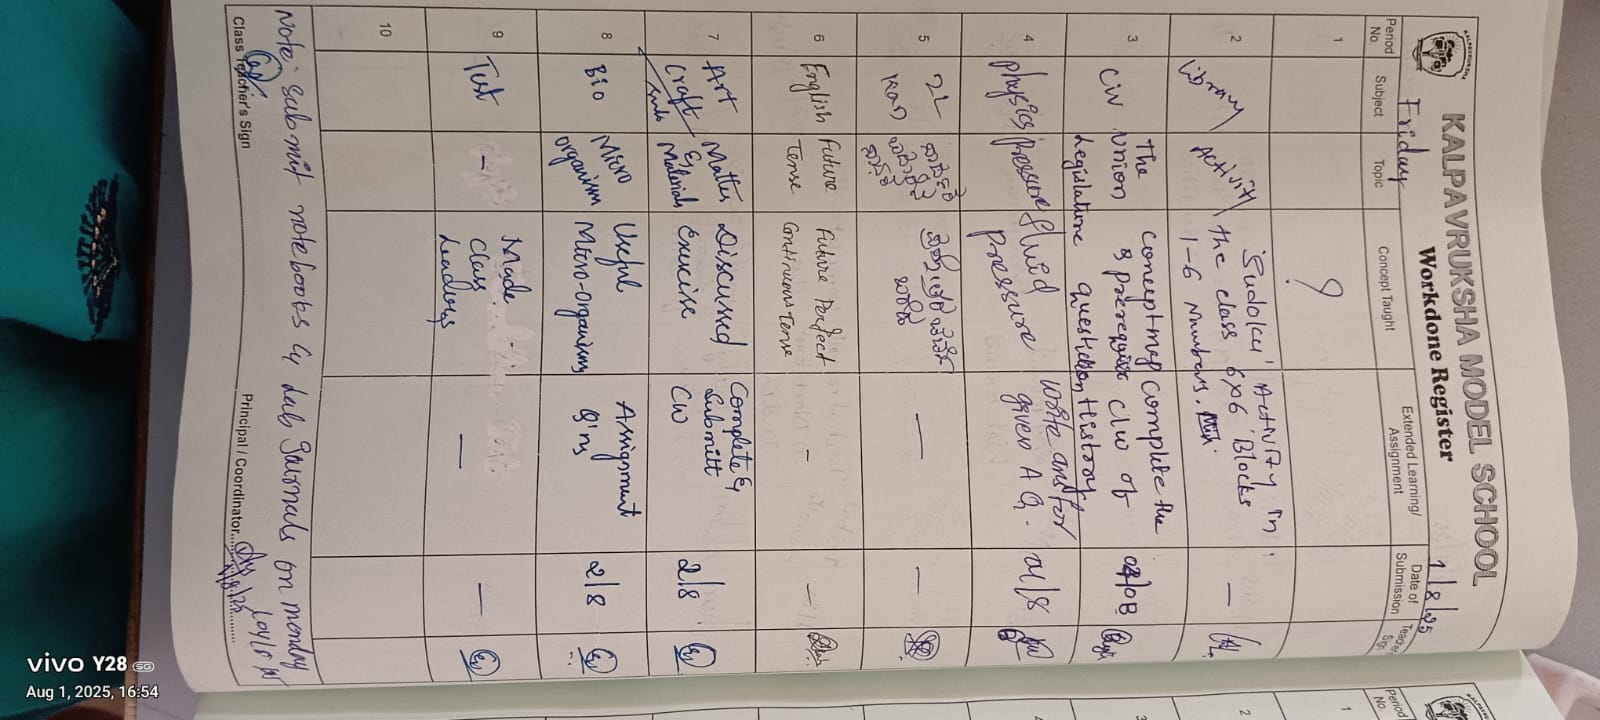 KALPAVRUKSHA MODEL SCHOOL
Workdone Register
Friday
1/8/25
Period No. Subject Topic Concept Taught Extended Learning/ Assignment Date of Submission Teacher Sign
1 ?
2 Library Activity 'Sudoku' Activity in the class 6x6 Blocks 1-6 Numbers. —
3 Civ The Union Legislature concept map & prerequisite question Complete the C/W of History /08
4 physics pressure fluid pressure write and for given A Q. 04/8
5 2L Kan — —
6 English Future Tense Future Perfect Continuous tense - —
7 Art Craft Matter & Materials Discussed Exercise Complete & Submitt CW 2/8
8 Bio Micro organism Useful Micro-Organisms Assignment Q'ns 2/8
9 Tut - Made Class Leaders — —
10
Note:- submit notebooks & lab Journals on monday
Class Teacher's Sign
Principal / Coordinator
1/8/25
Period No.
1
2
3
4
vivo Y28 5G
Aug 1, 2025, 16:54